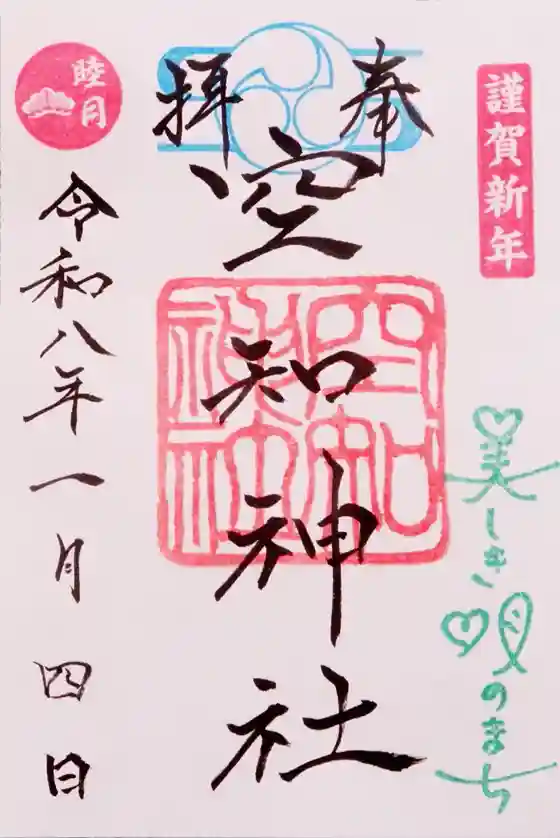 謹賀新年
美しき唄のまち
奉拝
空知神社
空知神社
睦月
令和八年一月四日